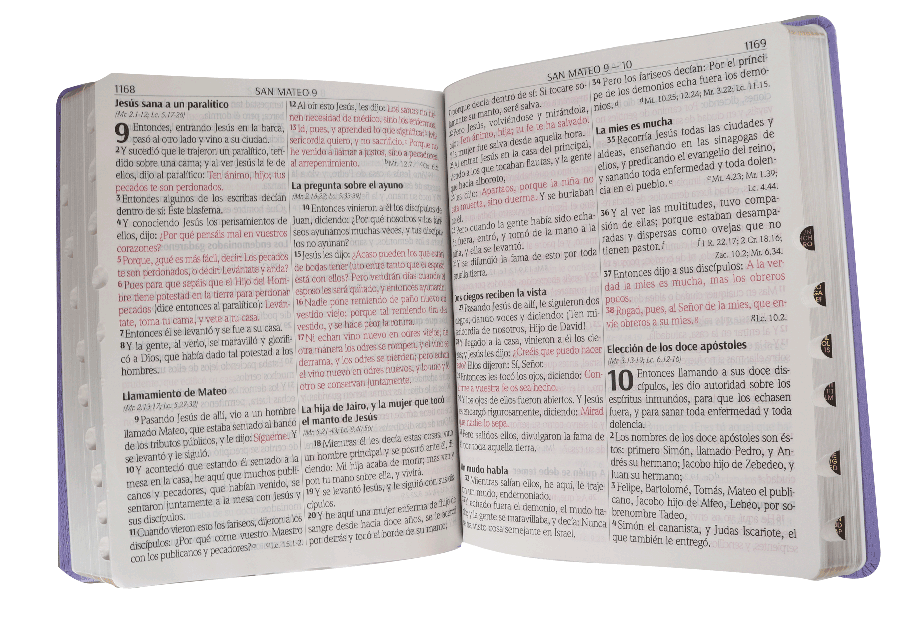 1168
SAN MATEO 9
Jesús sana a un paralítico
(Mr. 2.1-12; Lc. 5.17-26)
9 Entonces, entrando Jesús en la barca,
pasó al otro lado y vino a su ciudad.
2 Y sucedió que le trajeron un paralítico, ten-
dido sobre una cama; y al ver Jesús la fe de
ellos, dijo al paralítico: Ten ánimo, hijo; tus
pecados te son perdonados.
3 Entonces algunos de los escribas decían
dentro de sí: Éste blasfema.
4 Y conociendo Jesús los pensamientos de
ellos, dijo: ¿Por qué pensáis mal en vuestros
corazones?
5 Porque, ¿qué es más fácil, decir: Los pecados
te son perdonados, o decir: Levántate y anda?
6 Pues para que sepáis que el Hijo del Hom-
bre tiene potestad en la tierra para perdonar
pecados (dice entonces al paralítico): Leván-
tate, toma tu cama, y vete a tu casa.
7 Entonces él se levantó y se fue a su casa.
8 Y la gente, al verlo, se maravilló y glorifi-
có a Dios, que había dado tal potestad a los
hombres.
Llamamiento de Mateo
(Mr. 2.13-17; Lc. 5.27-32)
9 Pasando Jesús de allí, vio a un hombre
llamado Mateo, que estaba sentado al banco
de los tributos públicos, y le dijo: Sígueme. Y
se levantó y le siguió.
10 Y aconteció que estando él sentado a la
mesa en la casa, he aquí que muchos publi-
canos y pecadores, que habían venido, se
sentaron juntamente a la mesa con Jesús y
sus discípulos.
11 Cuando vieron esto los fariseos, dijeron a los
discípulos: ¿Por qué come vuestro Maestro
con los publicanos y pecadores? Lc. 15.1-2.
12 Al oír esto Jesús, les dijo: Los sanos no tie-
nen necesidad de médico, sino los enfermos.
13 Id, pues, y aprended lo que significa: Mi-
sericordia quiero, y no sacrificio. Porque no
he venido a llamar a justos, sino a pecadores
al arrepentimiento.
La pregunta sobre el ayuno
(Mr. 2.18-22; Lc. 5.33-39)
14 Entonces vinieron a él los discípulos de
Juan, diciendo: ¿Por qué nosotros y los fari-
seos ayunamos muchas veces, y tus discípu-
los no ayunan?
15 Jesús les dijo: ¿Acaso pueden los que están
de bodas tener luto entre tanto que el esposo
está con ellos? Pero vendrán días cuando el
esposo les será quitado, y entonces ayunarán.
16 Nadie pone remiendo de paño nuevo en
vestido viejo; porque tal remiendo tira del
vestido, y se hace peor la rotura.
17 Ni echan vino nuevo en odres viejos; de
otra manera los odres se rompen, y el vino se
derrama, y los odres se pierden; pero echan
el vino nuevo en odres nuevos, y lo uno y lo
otro se conservan juntamente.
La hija de Jairo, y la mujer que tocó
el manto de Jesús
(Mr. 5.21-43; Lc. 8.40-56)
18 Mientras él les decía estas cosas, vino
un hombre principal y se postró ante él, di-
ciendo: Mi hija acaba de morir; mas ven y
pon tu mano sobre ella, y vivirá.
19 Y se levantó Jesús, y le siguió con sus dis-
cípulos.
20 Y he aquí una mujer enferma de flujo de
sangre desde hacía doce años, se le acercó
por detrás y tocó el borde de su manto;
SAN MATEO 9 — 10
1169
porque decía dentro de sí: Si tocare so-
lamente su manto, seré salva.
Pero Jesús, volviéndose y mirándola,
dijo: Ten ánimo, hija; tu fe te ha salvado.
Y la mujer fue salva desde aquella hora.
Al entrar Jesús en la casa del principal,
viendo a los que tocaban flautas, y la gente
que hacía alboroto,
les dijo: Apartaos, porque la niña no
está muerta, sino duerme. Y se burlaban
Pero cuando la gente había sido echa-
da fuera, entró, y tomó de la mano a la
niña, y ella se levantó.
Y se difundió la fama de esto por toda
aquella tierra.
Dos ciegos reciben la vista
Pasando Jesús de allí, le siguieron dos
ciegos, dando voces y diciendo: ¡Ten mi-
sericordia de nosotros, Hijo de David!
Y llegado a la casa, vinieron a él los cie-
gos; y Jesús les dijo: ¿Creéis que puedo hacer
esto? Ellos dijeron: Sí, Señor.
Entonces les tocó los ojos, diciendo: Con-
forme a vuestra fe os sea hecho.
Y los ojos de ellos fueron abiertos. Y Jesús
les encargó rigurosamente, diciendo: Mirad
que nadie lo sepa.
Pero salidos ellos, divulgaron la fama de
él por toda aquella tierra.
Un mudo habla
Mientras salían ellos, he aquí, le traje-
ron un mudo, endemoniado.
Y echado fuera el demonio, el mudo ha-
bló; y la gente se maravillaba, y decía: Nunca
ha sido vista cosa semejante en Israel.
34 Pero los fariseos decían: Por el prínci-
pe de los demonios echa fuera los demo-
nios. Mt. 10.25; 12.24; Mr. 3.22; Lc. 11.15.
La mies es mucha
35 Recorría Jesús todas las ciudades y
aldeas, enseñando en las sinagogas de
ellos, y predicando el evangelio del reino,
y sanando toda enfermedad y toda dolen-
cia en el pueblo. Mt. 4.23; Mr. 1.39;
Lc. 4.44.
36 Y al ver las multitudes, tuvo compa-
sión de ellas; porque estaban desampa-
radas y dispersas como ovejas que no
tienen pastor. 1 R. 22.17; 2 Cr. 18.16;
Zac. 10.2; Mr. 6.34.
37 Entonces dijo a sus discípulos: A la ver-
dad la mies es mucha, mas los obreros
pocos.
38 Rogad, pues, al Señor de la mies, que en-
víe obreros a su mies. Lc. 10.2.
Elección de los doce apóstoles
(Mr. 3.13-19; Lc. 6.12-16)
10 Entonces llamando a sus doce dis-
cípulos, les dio autoridad sobre los
espíritus inmundos, para que los echasen
fuera, y para sanar toda enfermedad y toda
dolencia.
2 Los nombres de los doce apóstoles son és-
tos: primero Simón, llamado Pedro, y An-
drés su hermano; Jacobo hijo de Zebedeo, y
Juan su hermano;
3 Felipe, Bartolomé, Tomás, Mateo el publi-
cano, Jacobo hijo de Alfeo, Lebeo, por so-
brenombre Tadeo,
4 Simón el cananista, y Judas Iscariote, el
que también le entregó.